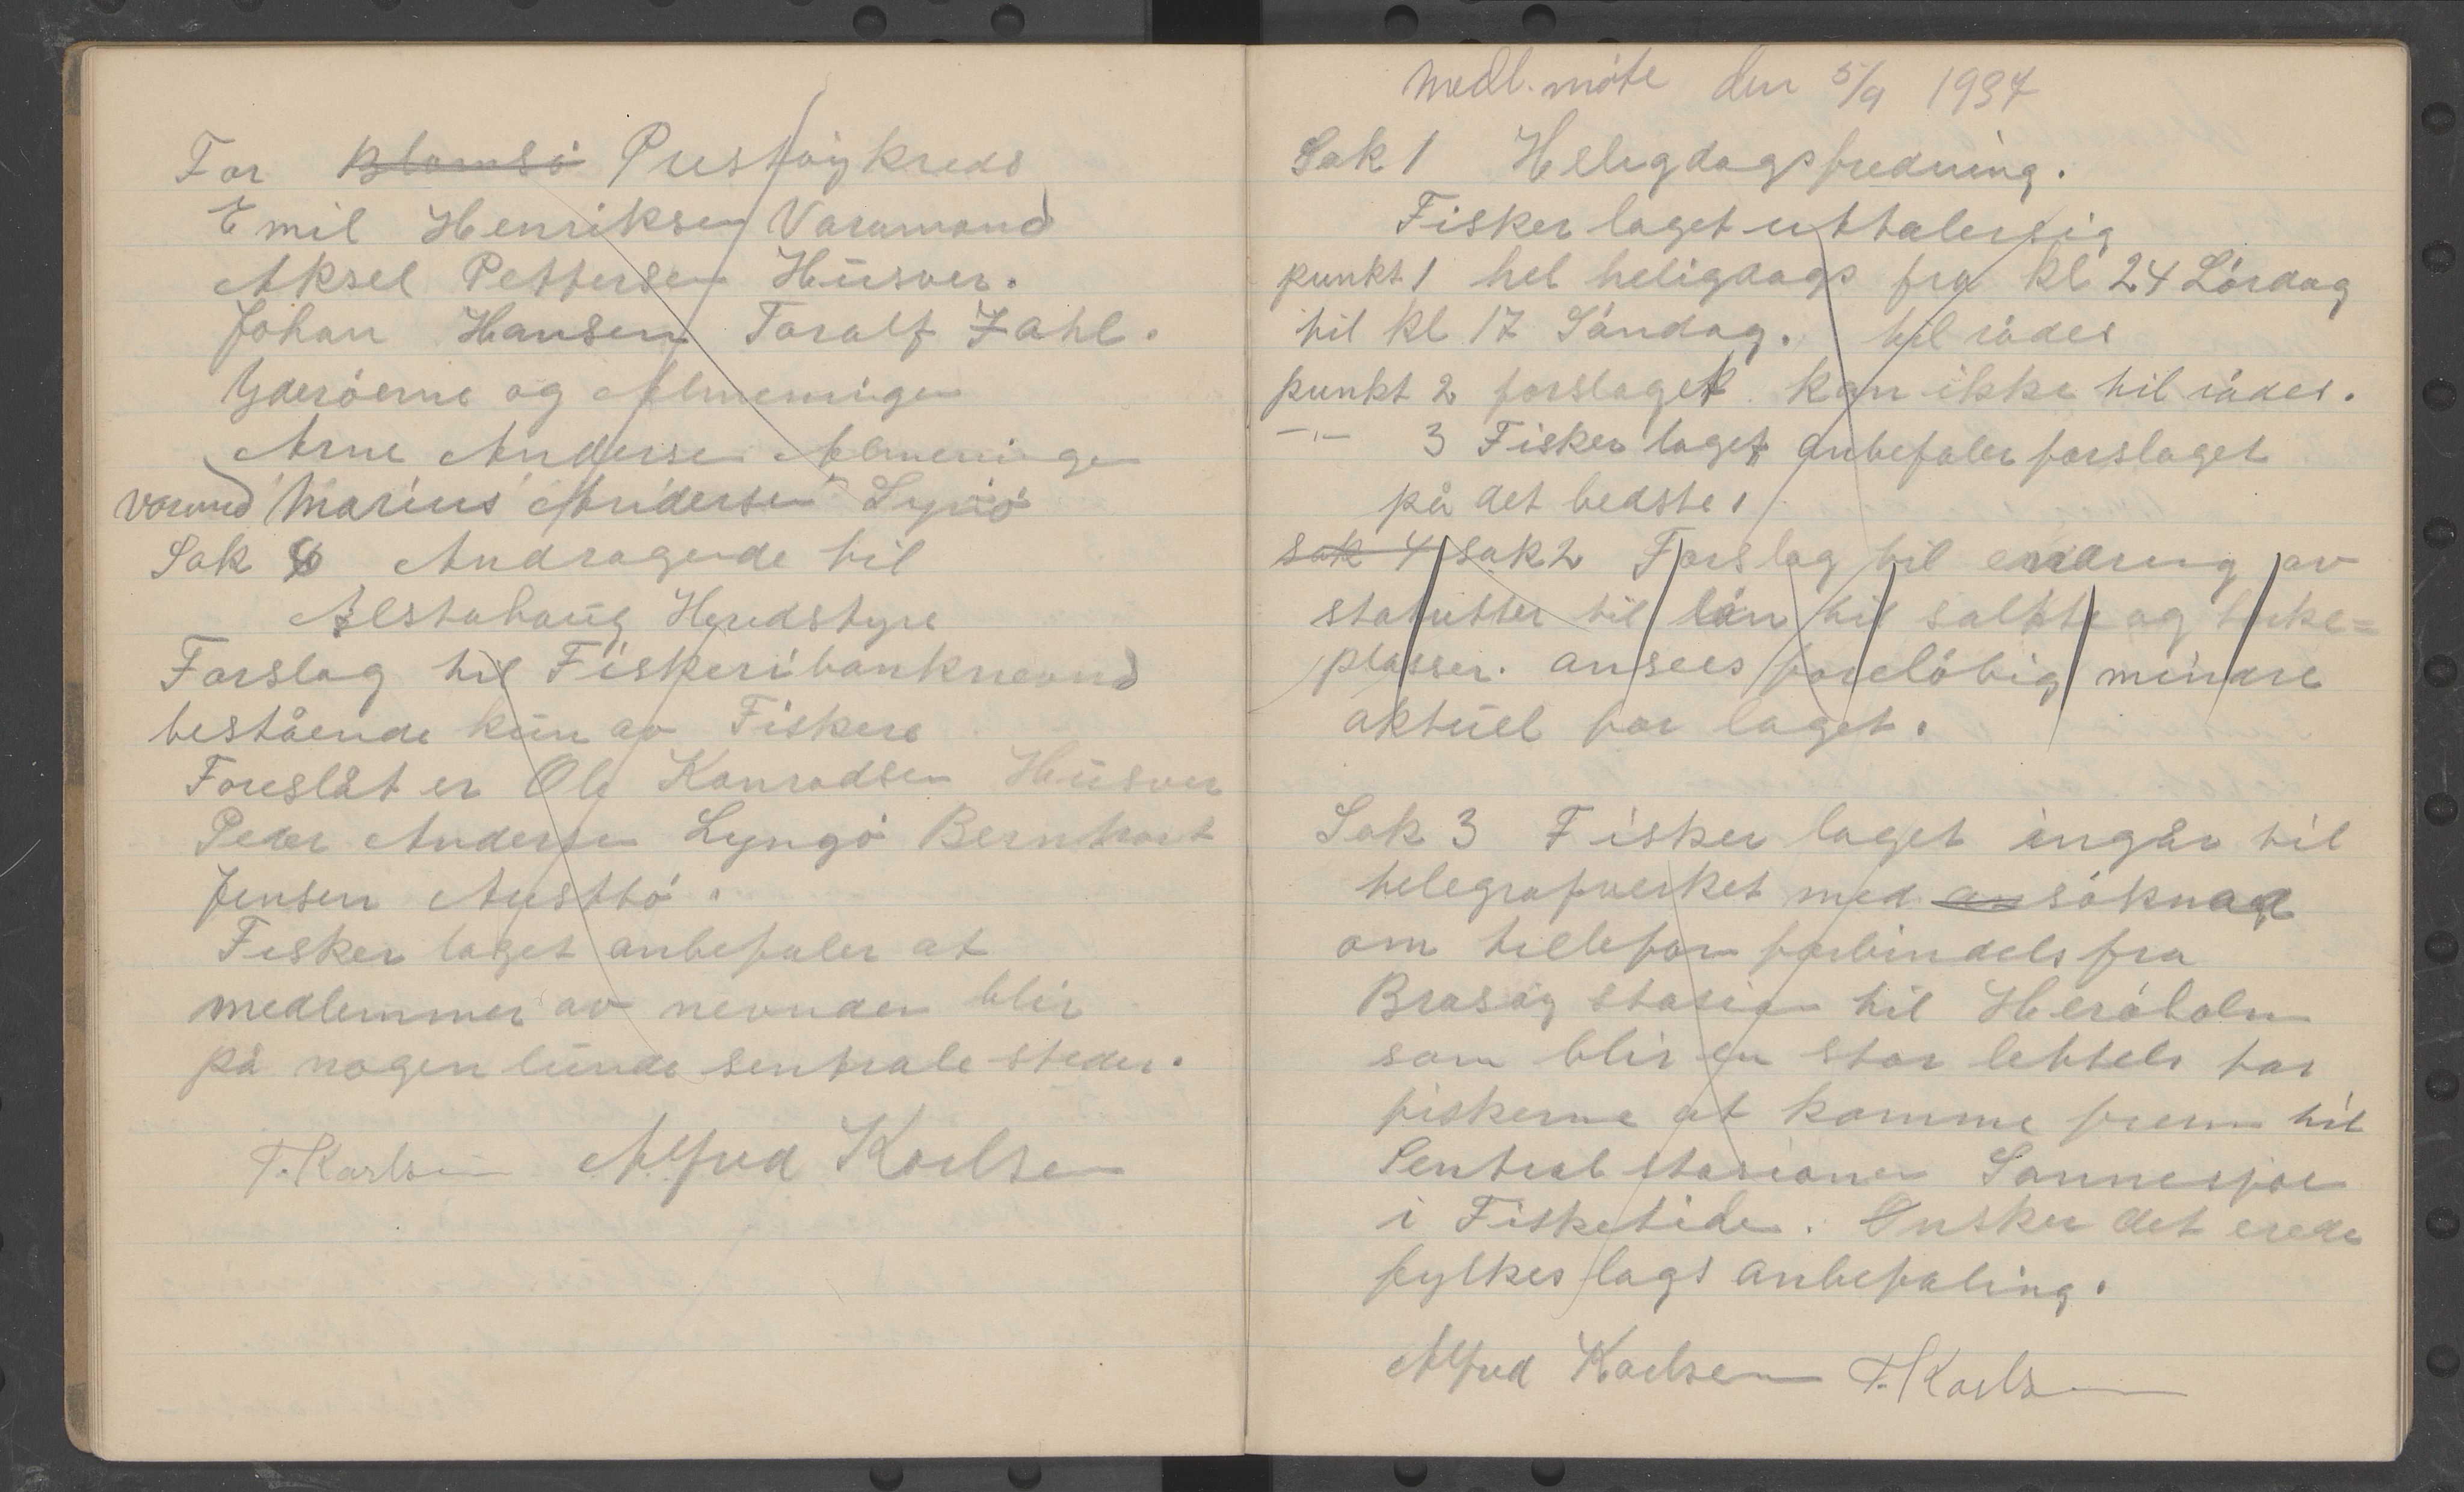 For ~~Blomsö~~ Prestöy kreds
Emil Henriksen Varamand
Aksel Pettersen Hüsver.
Johan Hansen Toralf Zahl.
Yderöerne og Almenningen
Arne Andersen Almeningen
varmd Marius Andersen Lyngö
Sak Andragende til
Alstahoug Heredstyre
Forslag til Fiskeribanknevnd
bestående kün av Fiskere
Foreslåt er Ole Konradsen Hüsver
Peder Andersen Lyngö Bernhart
Jensen Austbö.
Fisker laget anbefaler at
medlemmer av nevnden blir
på nogenlünde sentrale steder.
T. Karlsen Alfred Karlsen
Medl. möte den 5/9 1937
Sak 1 Heligdagsfredning.
Fisker laget uttaler sig
punkt 1 hel heligdags fra kl 24 Lördag
til kl 17 Söndag. til rådes
punkt 2 forslaget kan ikke til rådes.
-"- 3 Fisker laget anbefaler forslaget
på det bedste,
~~sak 4~~ sak 2 Forslag til endring av
statutter til lån til salte og törke=
plasser. ansees foreløbig mindre
aktüel for laget.
Sak 3 Fisker laget ingår til
telegrafverket med ~~an~~ söknad
om tillefon forbindels fra
Brasöy stasion til Heröholm
som blir en stor lettels for
fiskerne at komme frem til
Sentral stasionen Sannesjöen
i Fisketiden. Ønsker det erede
fylkes lags anbefaling.
Alfred Karlsen T. Karlsen